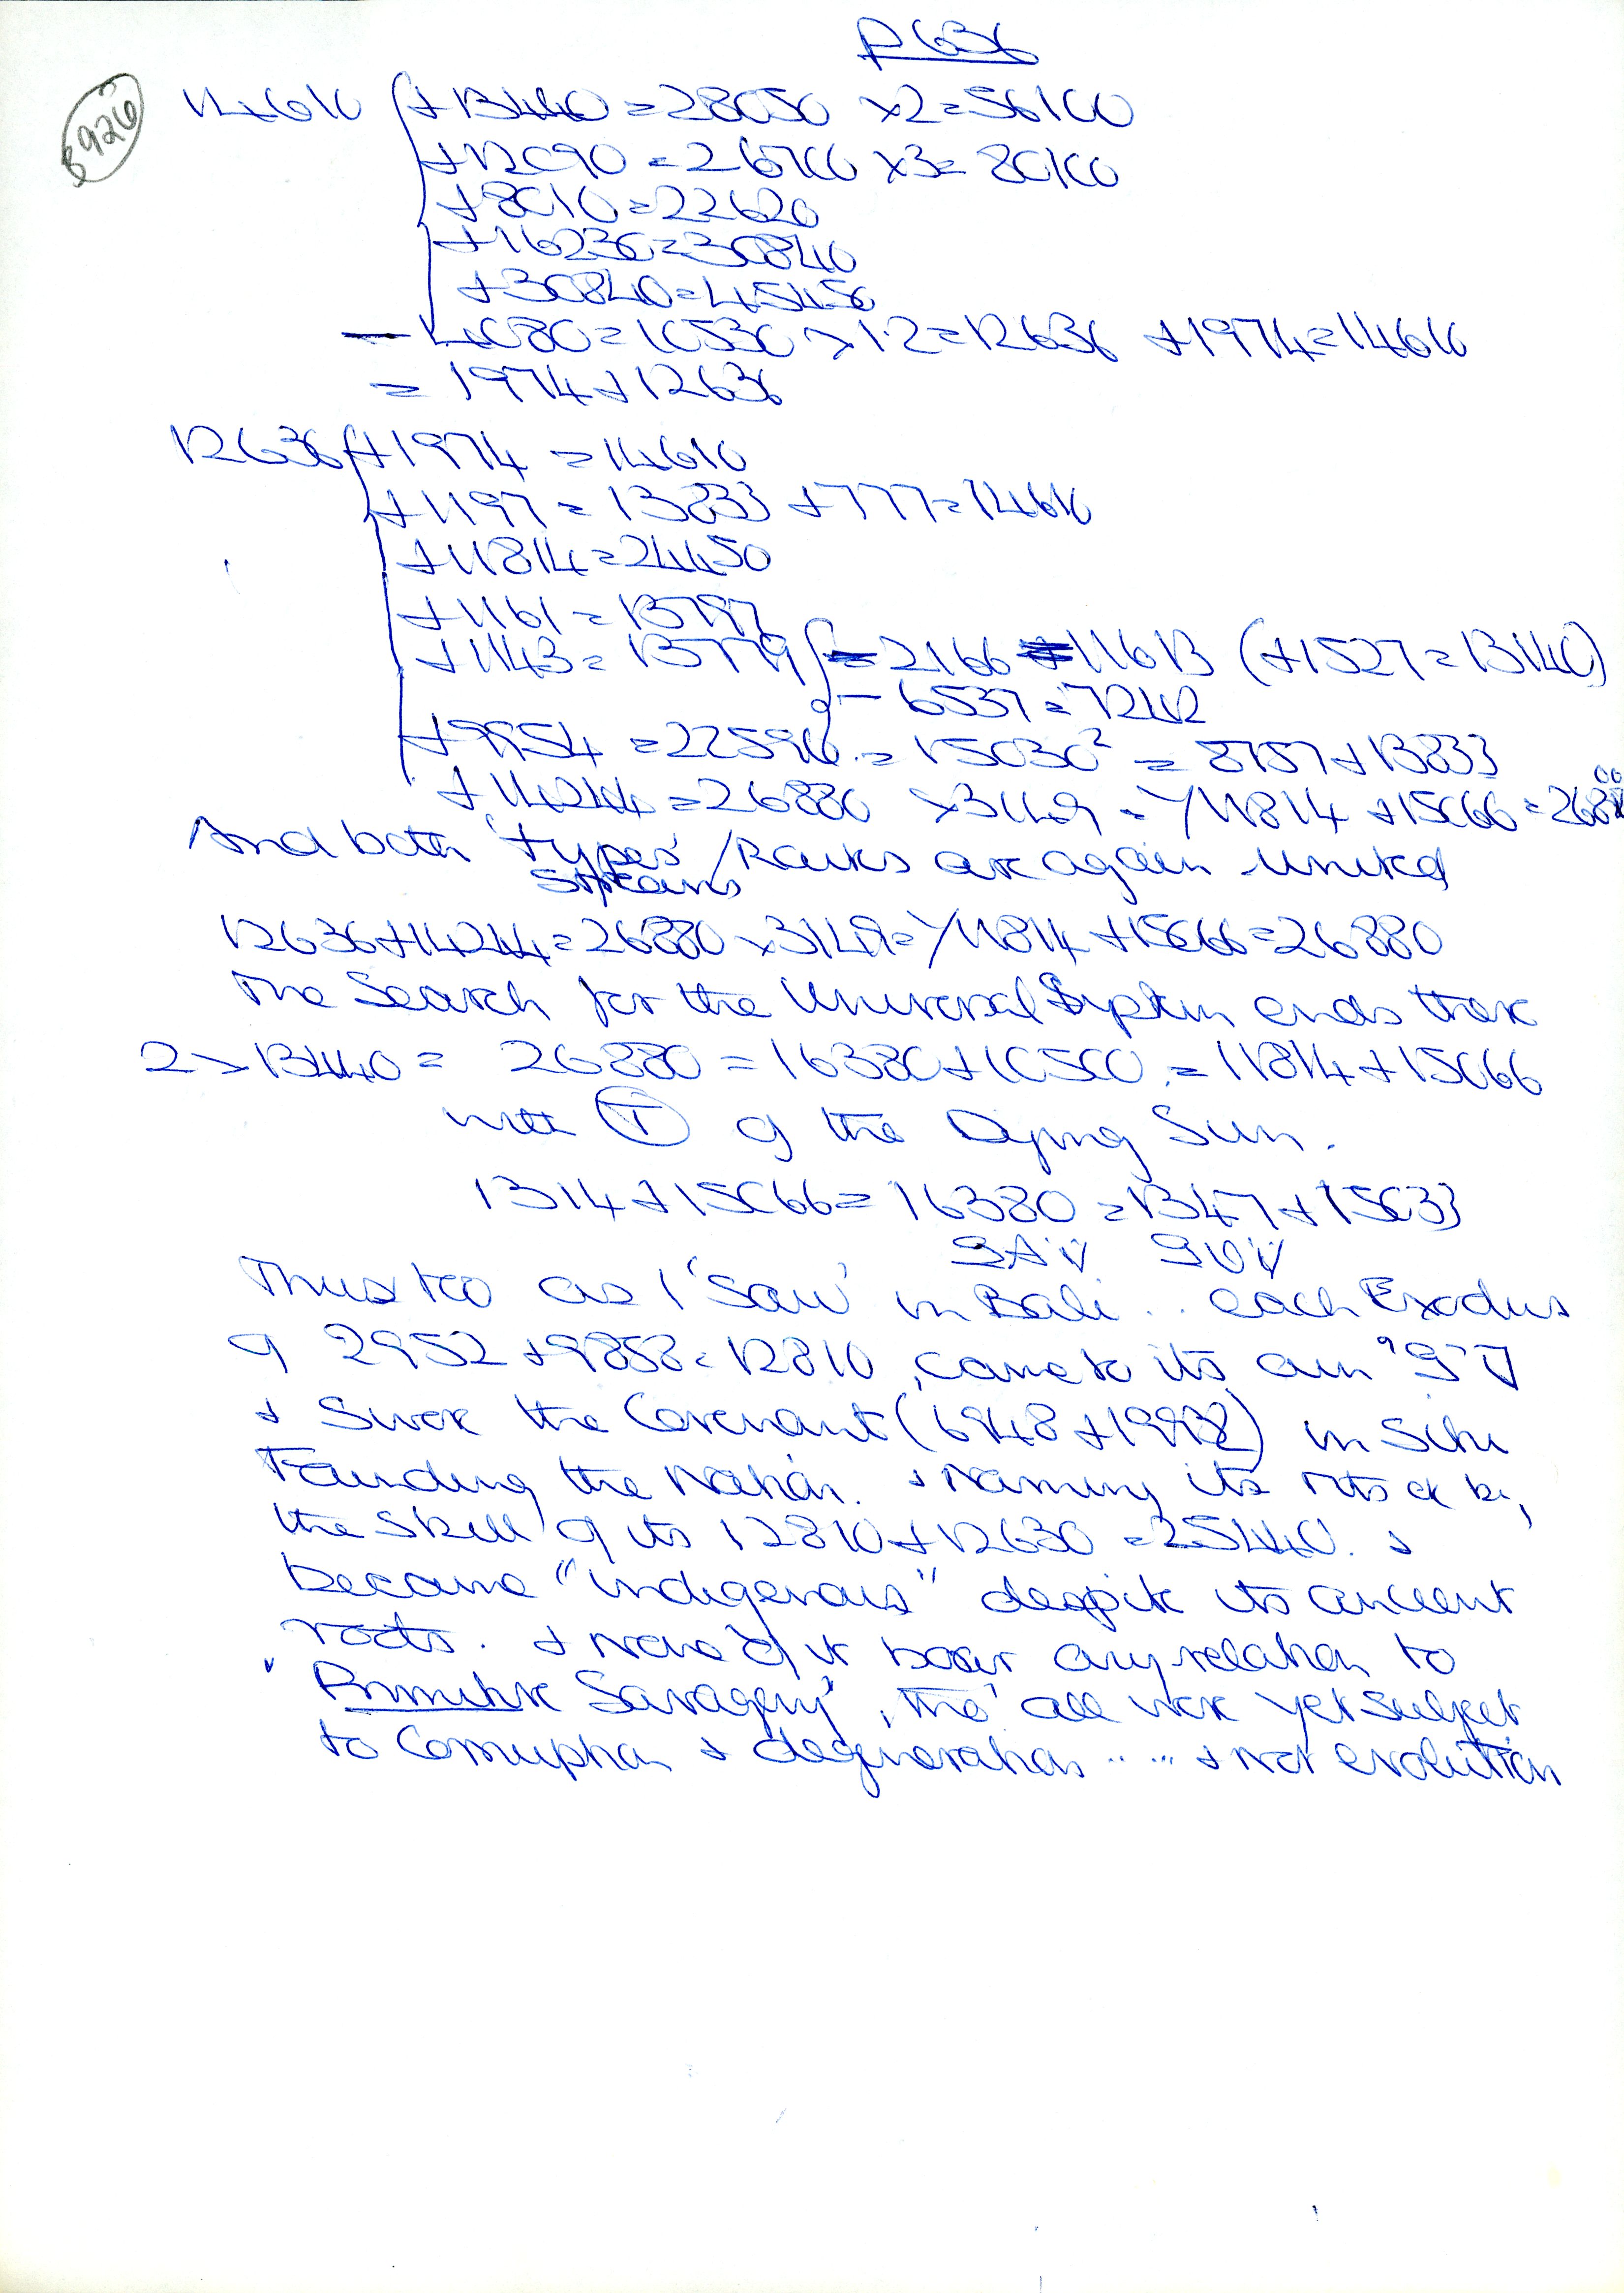 P636
3926
14610 { +13440 = 28050 x2 = 56100
+12090 = 26700 x3 = 80100
+8010 = 22620
+16230 = 30840
+30840 = 45450
- 4080 = 10530 x 1.2 = 12636 +1974 = 14610
= 1974 + 12636
12636 { +1974 = 14610
+1197 = 13833 +777 = 14610
+11814 = 24450
+1161 = 13797
+1143 = 13779 { - 2166 = 11613 (+1527 = 13140)
- 6537 = 7242
+9954 = 22590 = 15030² = 8757 + 13833
+14244 = 26880 x3149 = y11814 +15066 = 26880
And both 'types' / Ranks are again united
Systems
12636+14244 = 26880 x3149 = y11814 +15066 = 26880
The Search for the Universal System ends there
2 x 13440 = 26880 = 16380+10500 = 11814+15066
with T of the Dying Sun.
1314+15066 = 16380 = 1347 + 15033
Thus too as I 'saw' in Bali .. each Exodus
of 2952 +9858 = 12810, came to its own
+ Swore the Covenant (6948 +1998) in Situ
Founding the Nation. + Naming its
the skill of its 12810+12630 = 25440. +
became "indigenous" despite its ancient
roots. + None of it bear any relation to
"Primitive Savagery", tho' all were yet subject
to Corruption + degeneration ..... + not evolution